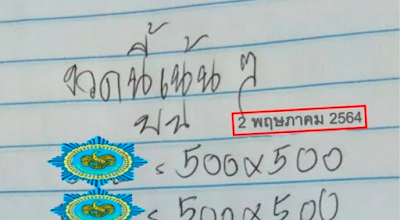 งวดนี้เน้น ๆ
บน
2 พฤษภาคม 2564
= 500×500
= 500×500